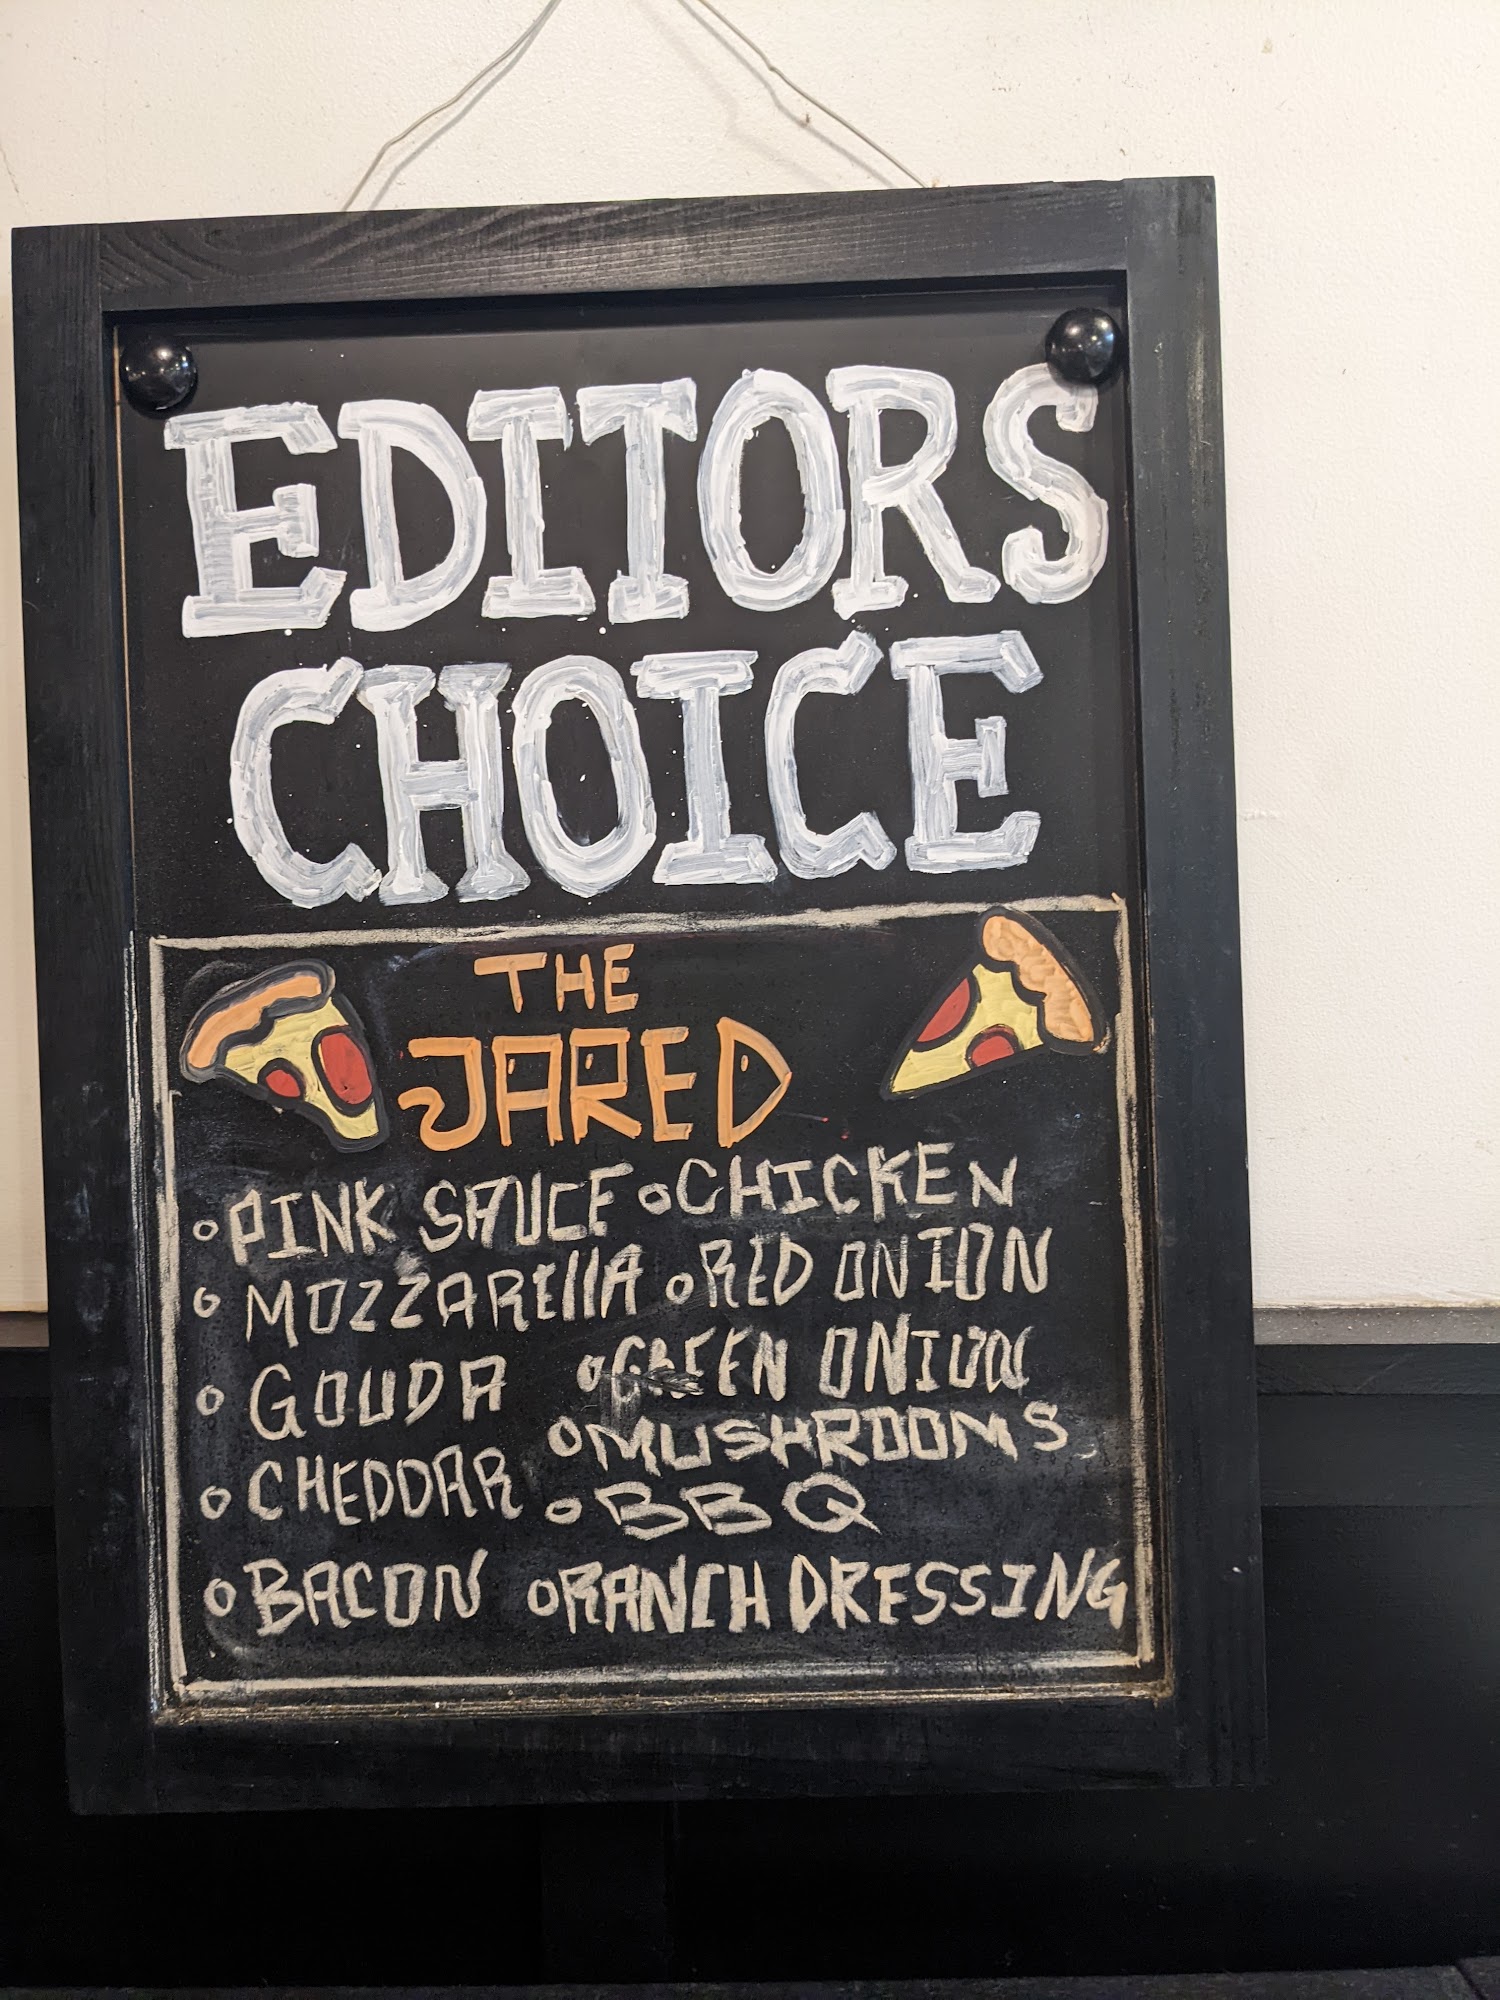 EDITORS
CHOICE
THE
JARED
PINK SAUCE
MOZZAREllA
GOUDA
CHEDDAR
BACON
CHICKEN
RED ONION
GREEN ONION
MUSHROOMS
BBQ
RANCH DRESSING